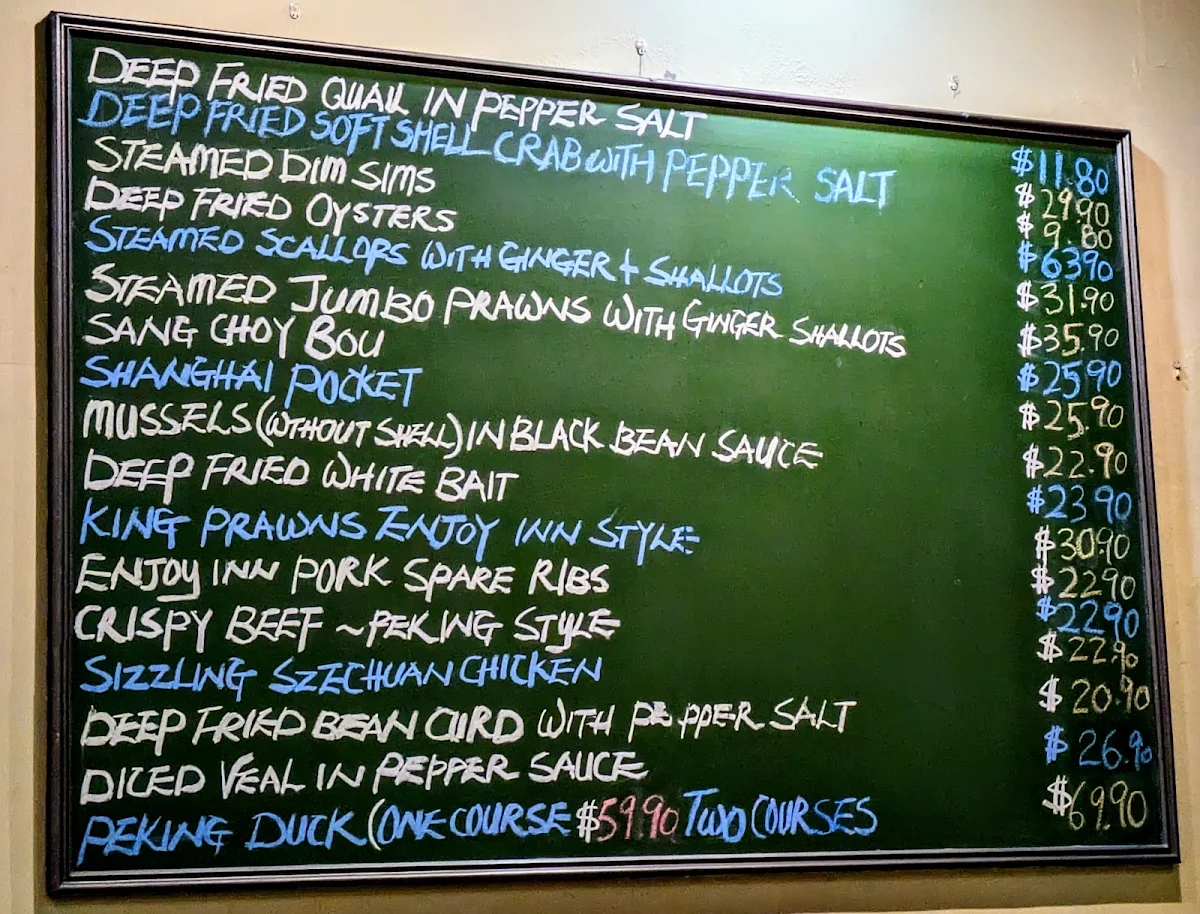 DEEP FRIED QUAIL IN PEPPER SALT $11.80
DEEP FRIED SOFT SHELL CRAB WITH PEPPER SALT $29.90
STEAMED DIM SIMS $9.80
DEEP FRIED OYSTERS $6390
STEAMED SCALLOPS WITH GINGER + SHALLOTS $31.90
STEAMED JUMBO PRAWNS WITH GINGER SHALLOTS $35.90
SANG CHOY BOU $25.90
SHANGHAI POCKET $25.90
MUSSELS (WITHOUT SHELL) IN BLACK BEAN SAUCE $22.90
DEEP FRIED WHITE BAIT $23.90
KING PRAWNS ENJOY INN STYLE $30.90
ENJOY INN PORK SPARE RIBS $2290
CRISPY BEEF ~PEKING STYLE $2290
SIZZLING SZECHUAN CHICKEN $22.90
DEEP FRIED BEAN CURD WITH PEPPER SALT $20.90
DICED VEAL IN PEPPER SAUCE $26.90
PEKING DUCK (ONE COURSE $59.90 TWO COURSES $69.90